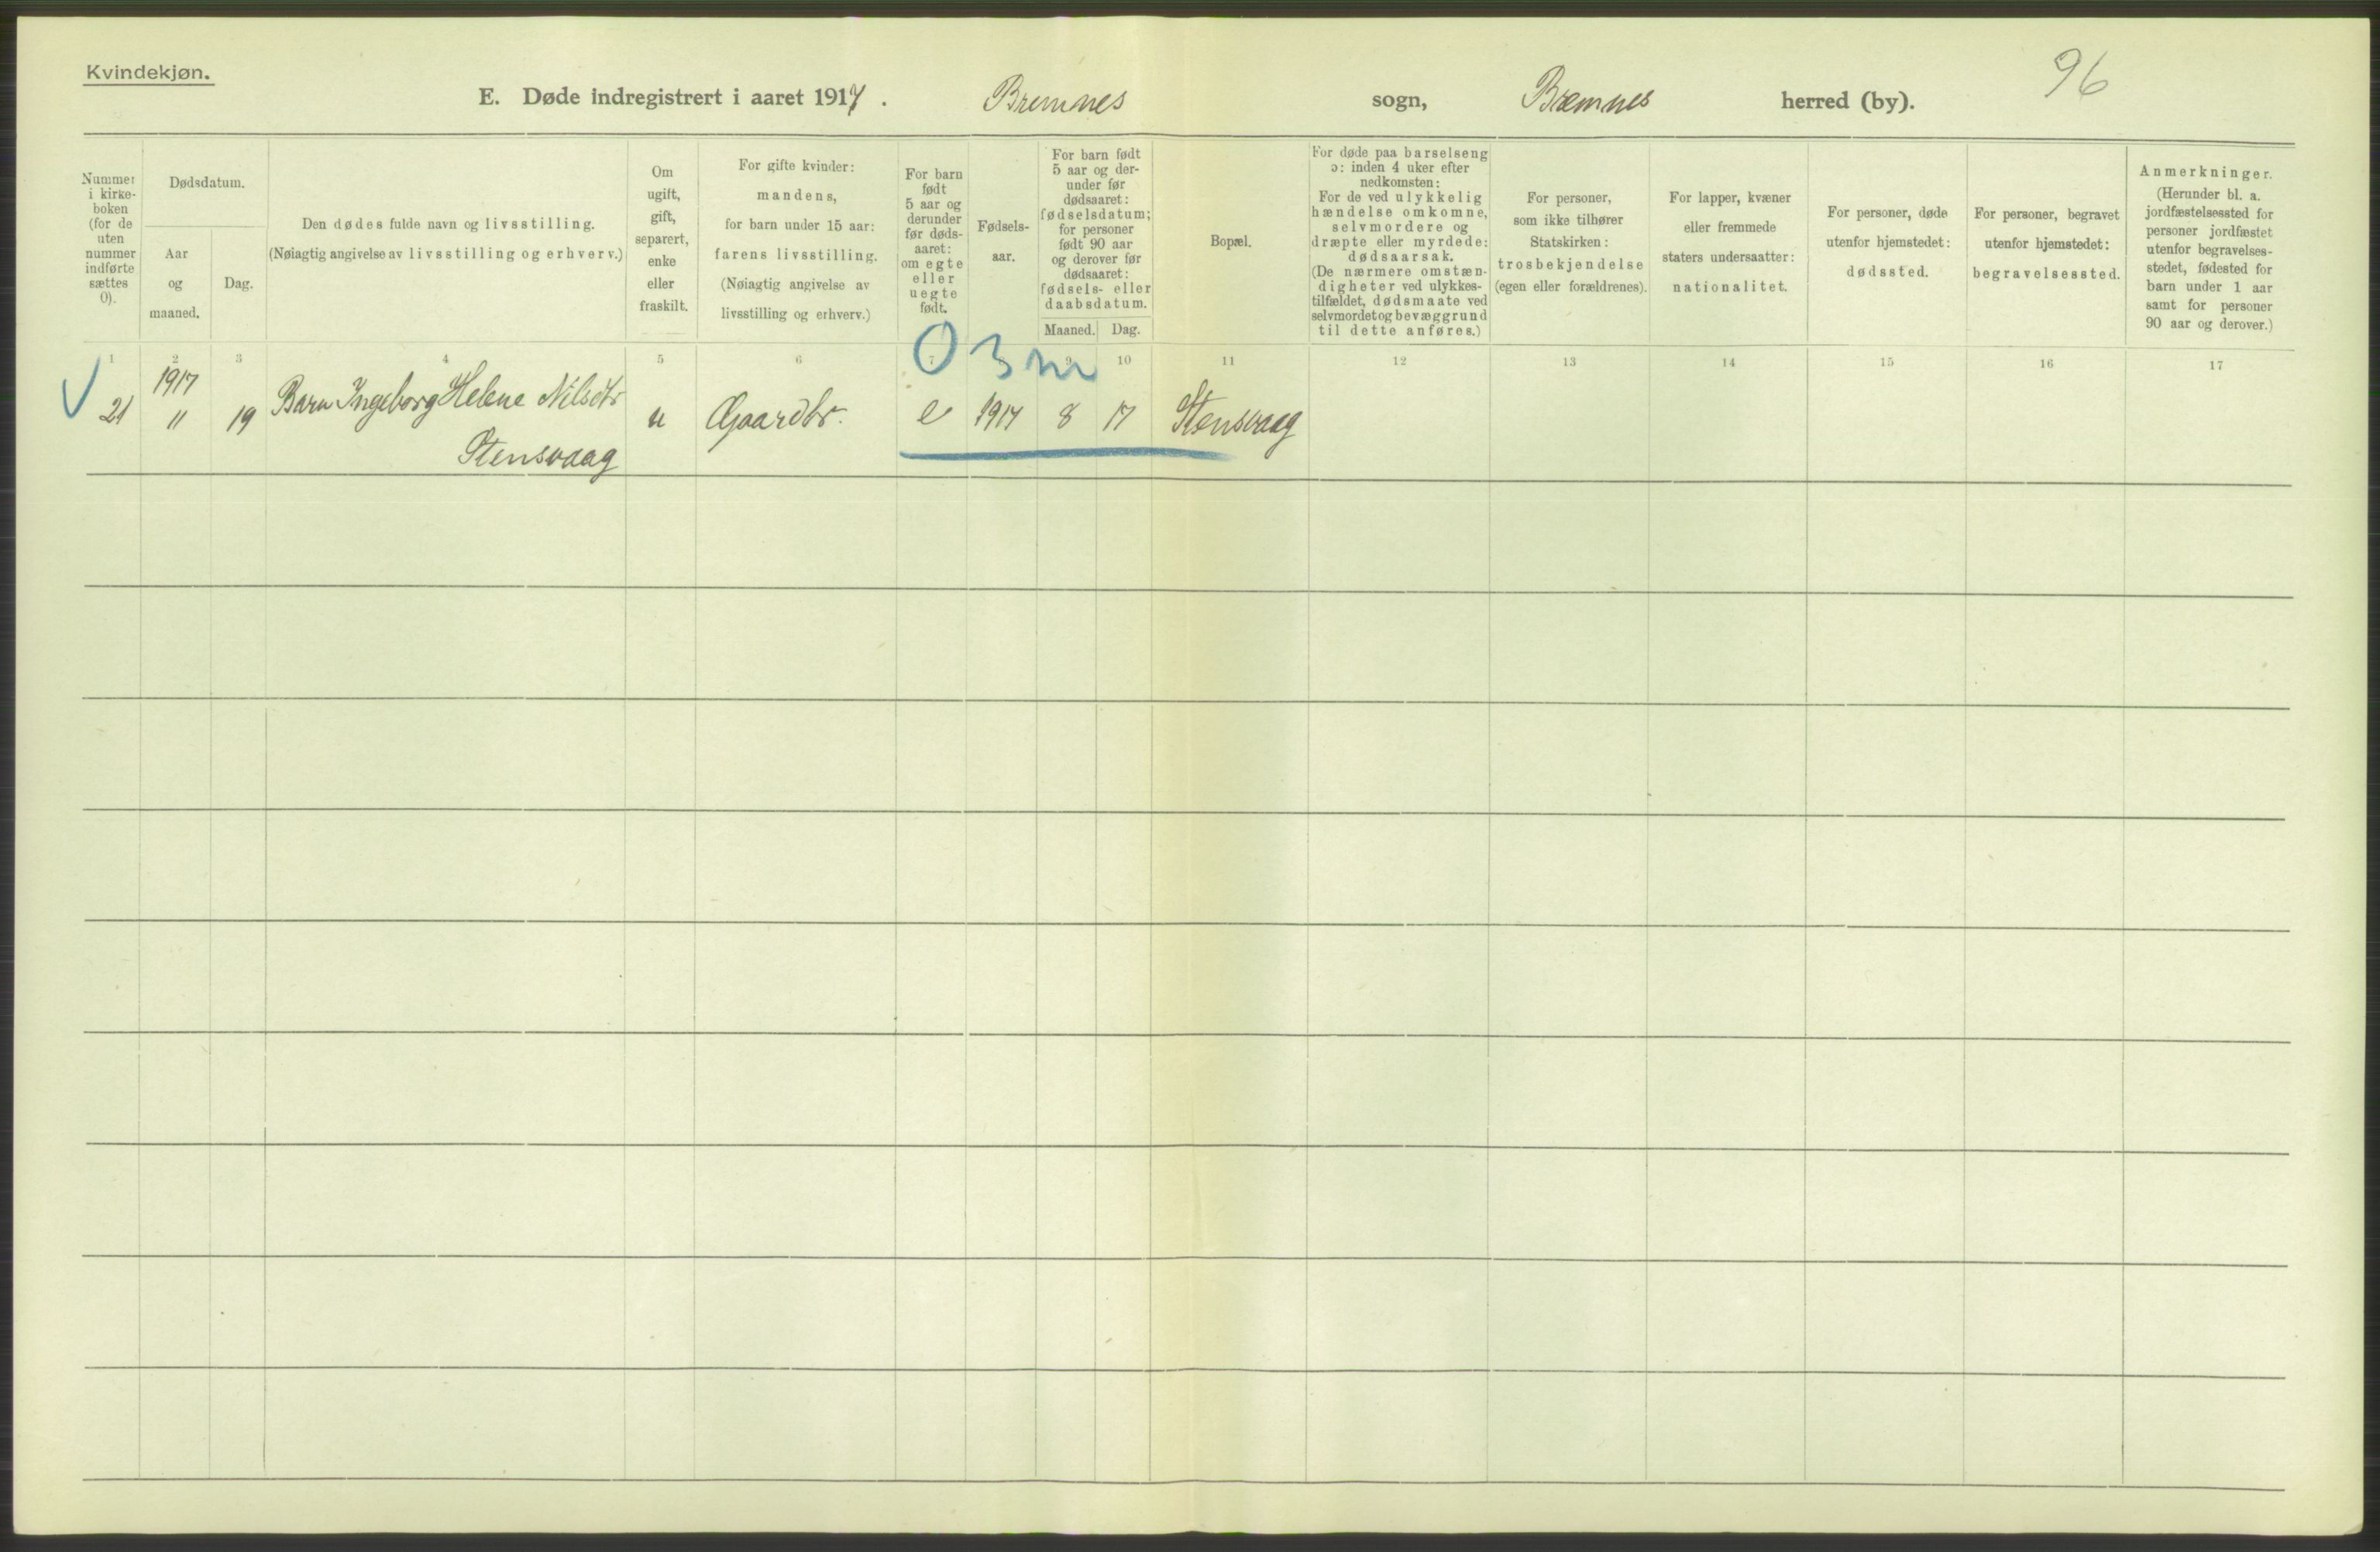 Kvindekjøn.
E. Døde indregistrert i aaret 1917. Bremnes sogn, Bremnes herred (by).
96
Nummer
i kirke-
boken
(for de
uten
nummer
indførte
sættes
0).
Dødsdatum.
Aar
og
maaned.
Dag.
Den dødes fulde navn og livsstilling.
(Nøiagtig angivelse av livsstilling og erhverv.)
Om
ugift,
gift,
separert,
enke
eller
fraskilt.
For gifte kvinder:
mandens,
for barn under 15 aar:
farens livsstilling.
(Nøiagtig angivelse av
livsstilling og erhverv.)
For barn
født
5 aar og
derunder
før døds-
aaret:
om egte
eller
uegte
født.
Fødsels-
aar.
For barn født
5 aar og der-
under før
dødsaaret:
fødselsdatum;
for personer
født 90 aar
og derover før
dødsaaret:
fødsels- eller
daabsdatum.
Maaned. Dag.
Bopæl.
For døde paa barselseng
ɔ: inden 4 uker efter
nedkomsten:
For de ved ulykkelig
hændelse omkomne,
selvmordere og
dræpte eller myrdede:
dødsaarsak.
(De nærmere omstæn-
digheter ved ulykkes-
tilfældet, dødsmaate ved
selvmordet og bevæggrund
til dette anføres.)
For personer,
som ikke tilhører
Statskirken:
trosbekjendelse
(egen eller forældrenes).
For lapper, kvæner
eller fremmede
staters undersaatter:
nationalitet.
For personer, døde
utenfor hjemstedet:
dødssted.
For personer, begravet
utenfor hjemstedet:
begravelsessted.
Anmerkninger.
(Herunder bl. a.
jordfæstelsessted for
personer jordfæstet
utenfor begravelses-
stedet, fødested for
barn under 1 aar
samt for personer
90 aar og derover.)
1 2 3 4 5 6 7 9 10 11 12 13 14 15 16 17
0 3 m
1917
21 11 19 Barn Ingeborg Helene Nilsdtr u Gaardbr. e 1917 8 17 Stensvaag
Stensvaag